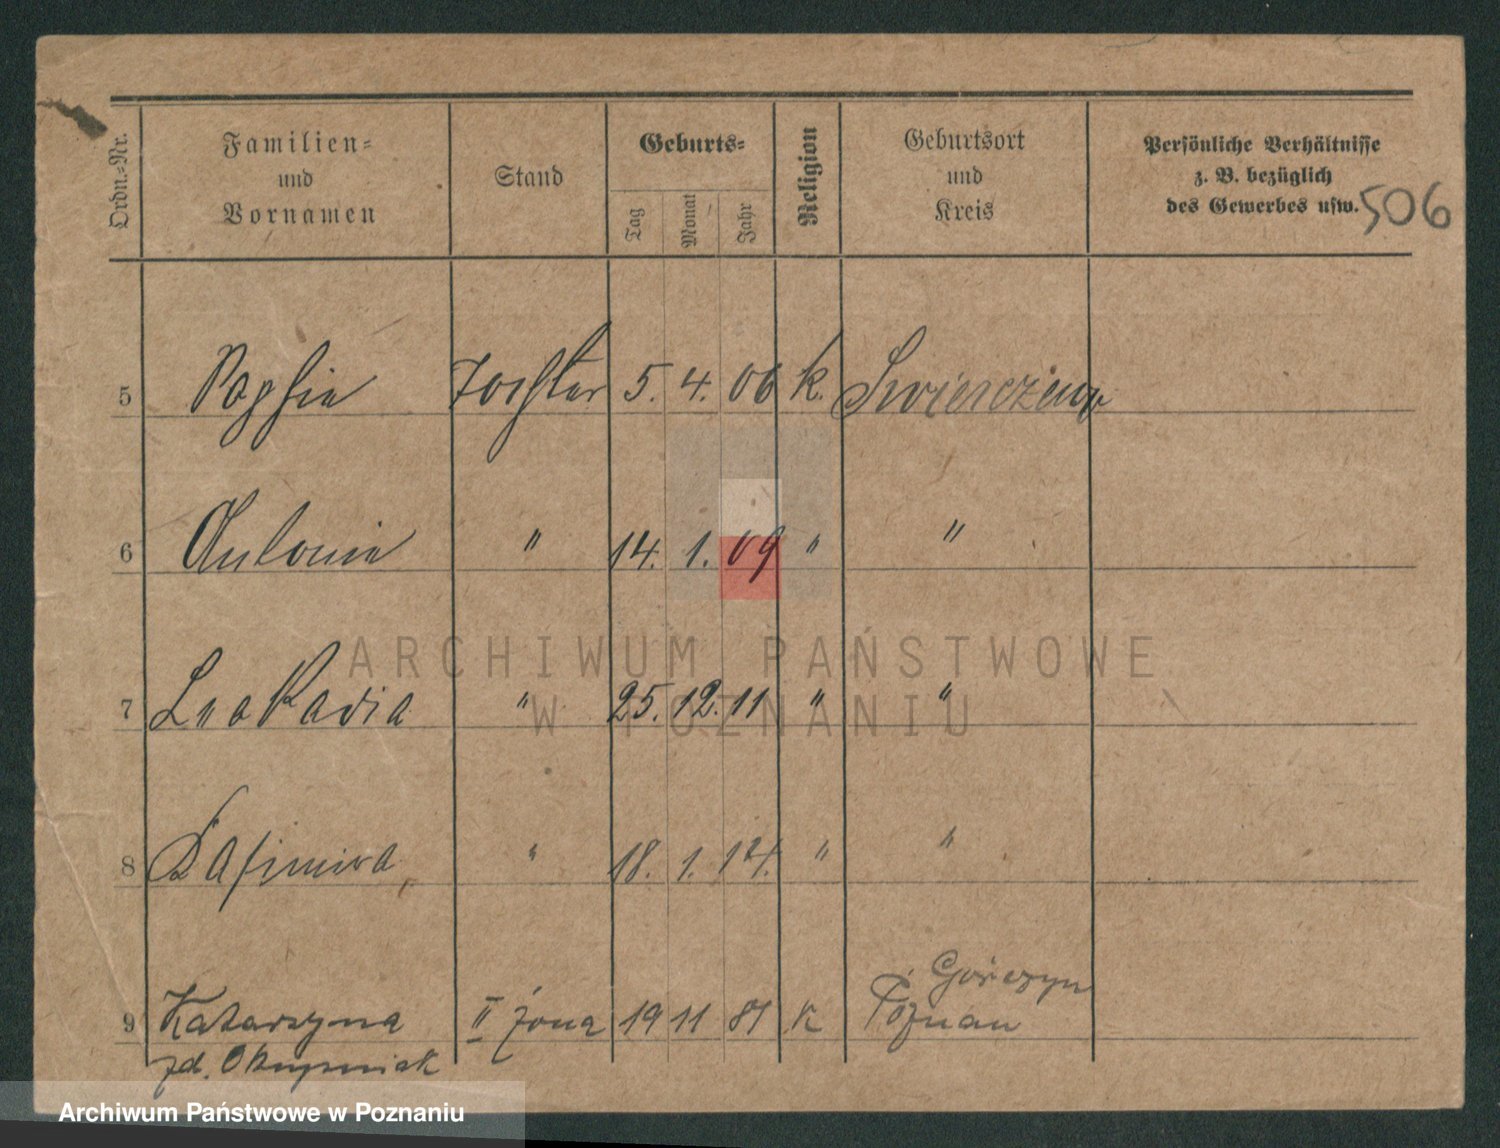 Ordn.-Nr.
Familien-
und
Vornamen
Stand
Geburts-
Tag
Monat
Jahr
Religion
Geburtsort
und
Kreis
Persönliche Verhältnisse
z. B. bezüglich
des Gewerbes usw.
506
5 Sophie Tochter 5. 4. 06 k. Swierczewo
6 Antonie " 14. 1. 09 " "
7 Leokadia " 25. 12. 11 " "
8 Kasimira " 18. 1. 14. " "
Górczyn
9 Katarzyna II żona 19 11 81 K Poznań
ARCHIWUM PAŃSTWOWE
W POZNANIU
Archiwum Państwowe w Poznaniu